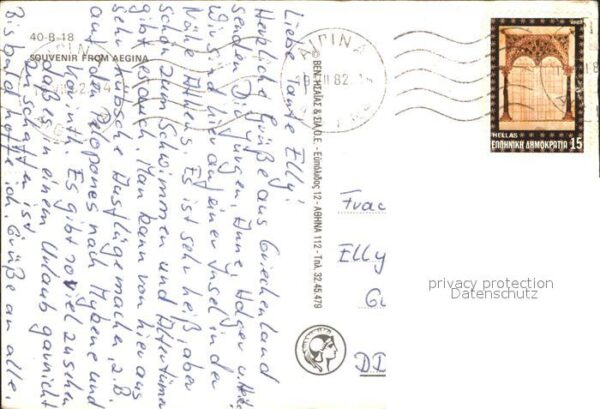 40-B-18
SOUVENIR FROM AEGINA
Liebe Tante Elly!
Herzliche Grüße aus Griechenland
senden Dir Jürgen, Anne, Holger u. Heike
Wir sind hier auf einer Insel in der
Nähe Athens. Es ist sehr heiß, aber
schön zum Schwimmen und Altertümer
gibt es auch. Man kann von hier aus
sehr hübsche Ausflüge machen, z.B.
auf den Peloponnes nach Mykene und
Korinth. Es gibt so viel zu sehen
daß es in einem Urlaub garnicht
zu schaffen ist.
Bis bald hoffe ich. Grüße an alle.
ΒΕΝ. ΜΣΑΪΑΣ & ΣΙΑ Ο.Ε. - Εὐπόλιδος 12 - ΑΘΗΝΑ 112 - Τηλ. 32.45.479
ΑΙΓΙΝΑ
82
HELLAS
ΕΛΛΗΝΙΚΗ ΔΗΜΟΚΡΑΤΙΑ 15
Frau
Elly
privacy protection
Datenschutz